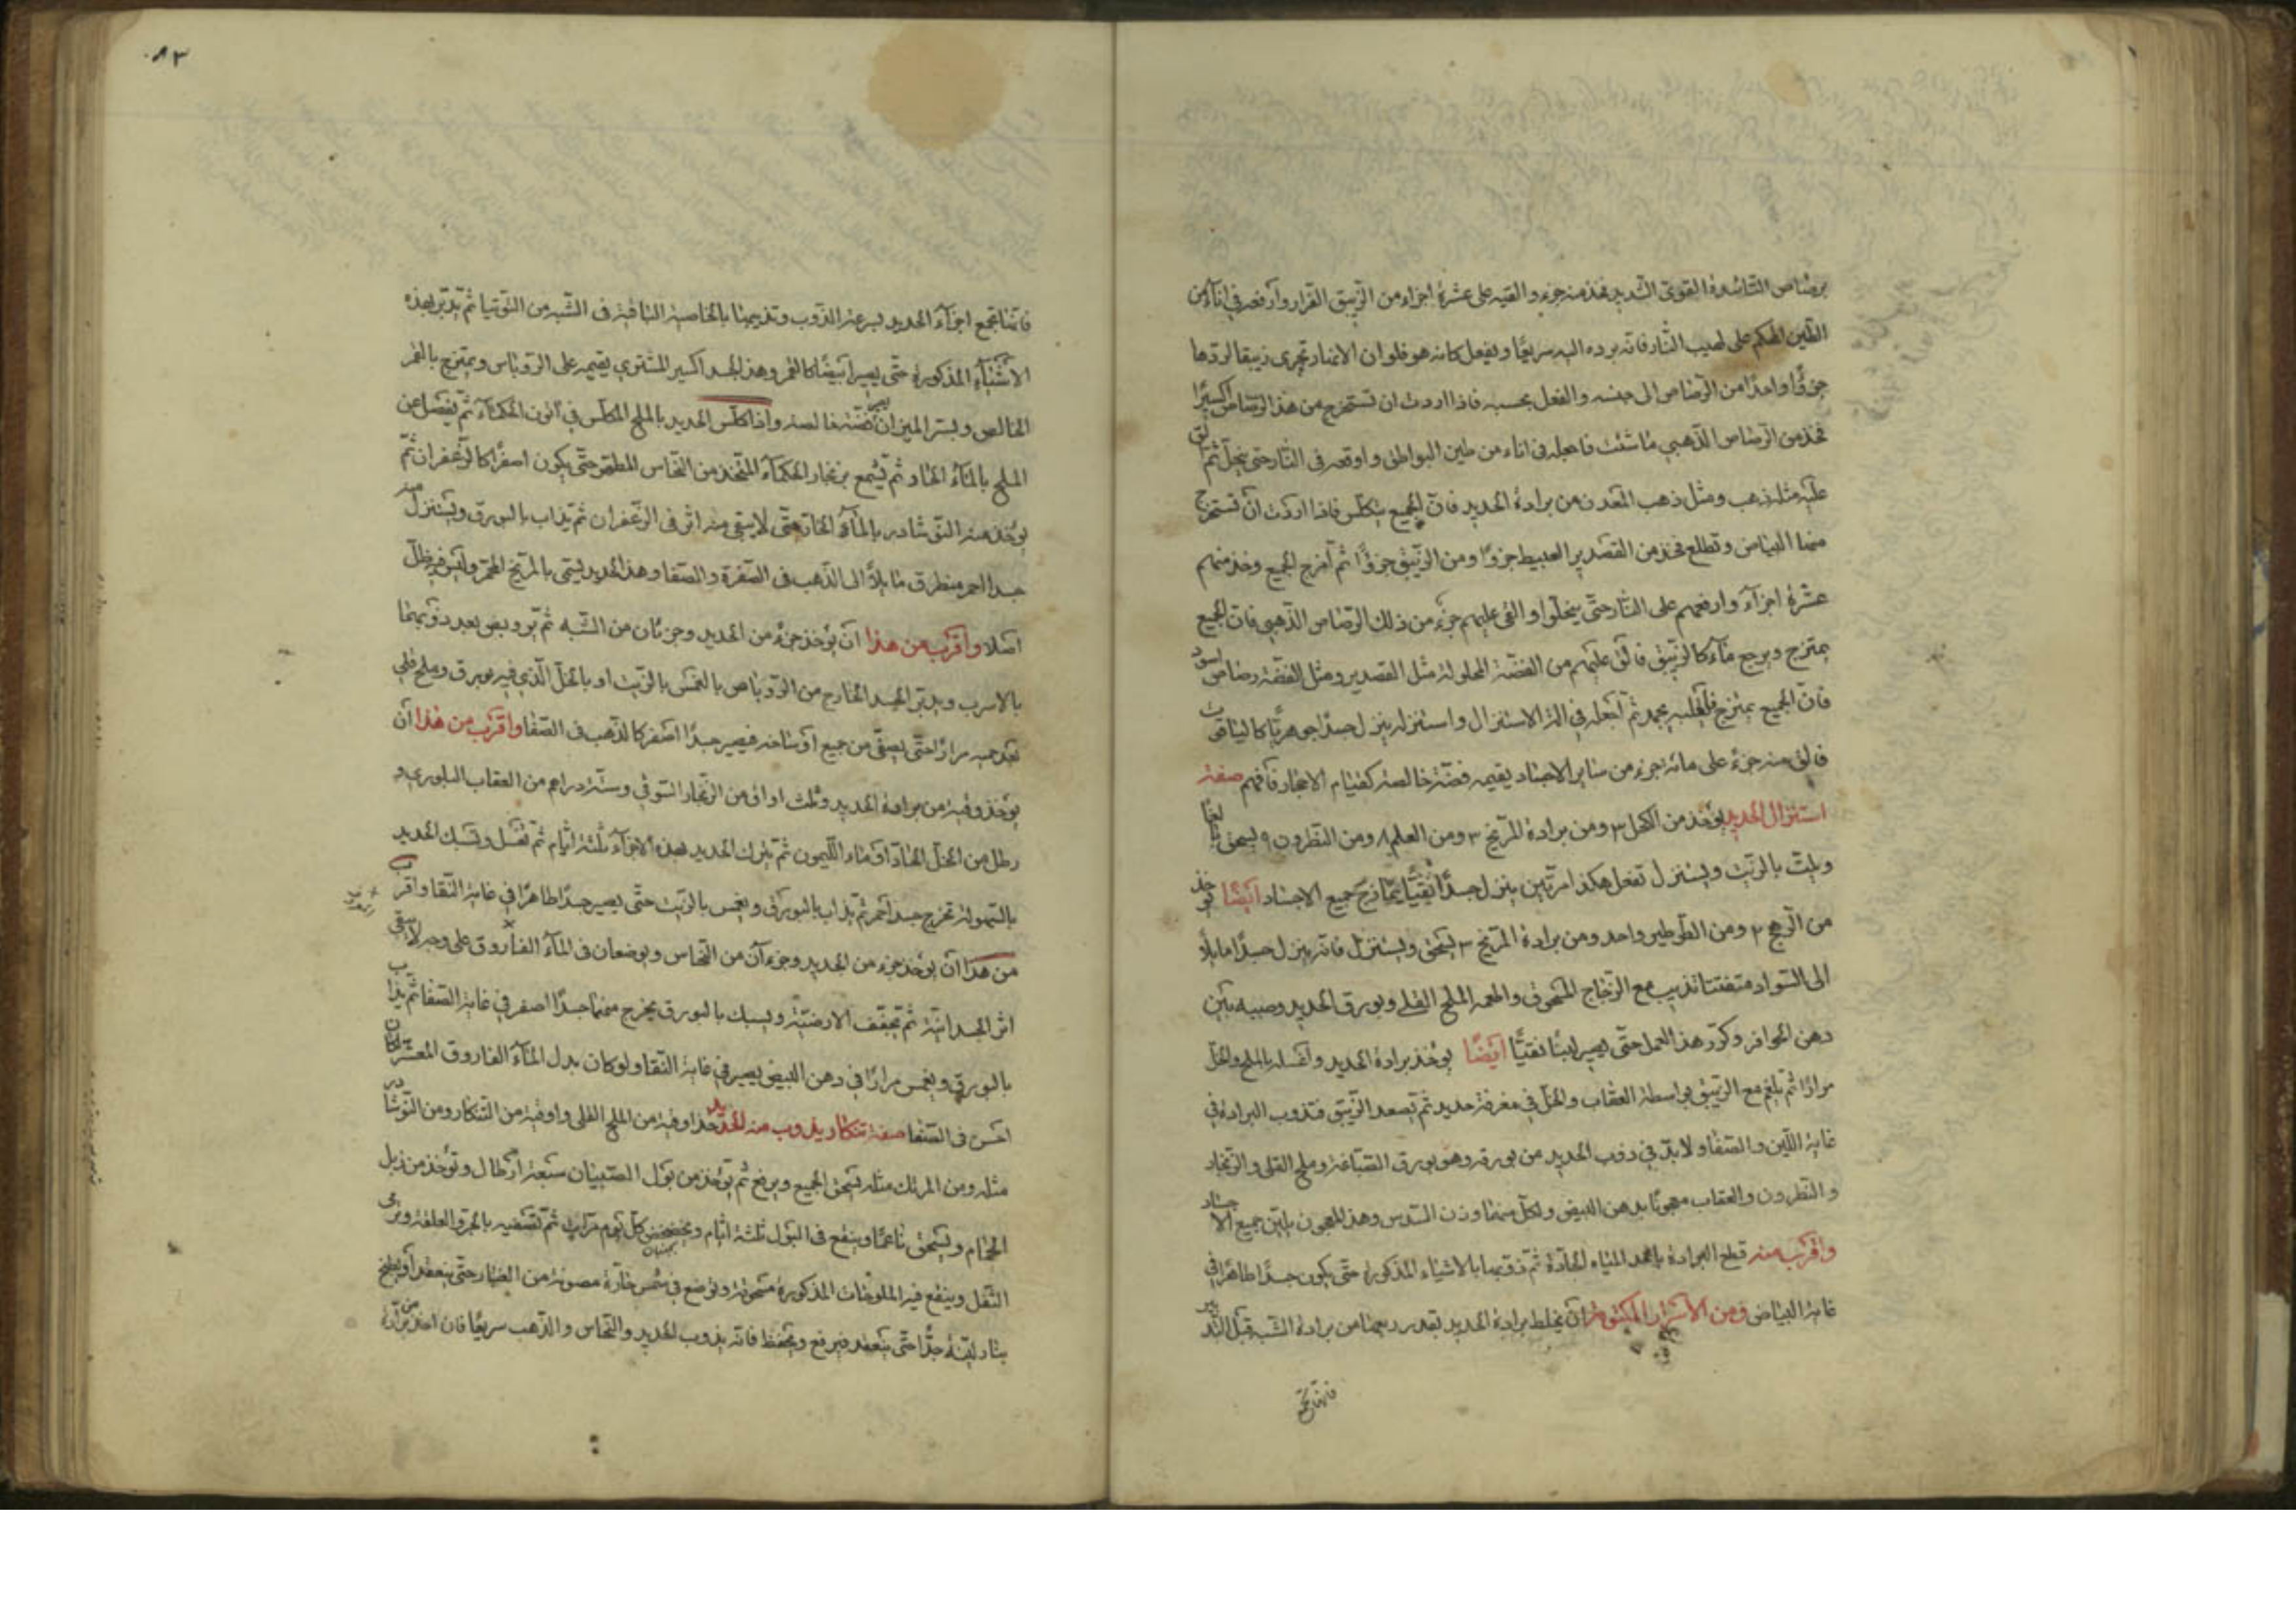 برصاص التاسد هذا القوى الشديد فخذ منه جزء والقيه على عشرة اجزاء من الزيبق الفرار وارفعه في اناء من
الطين المحكم على لهيب النار فانه يرده اليه سريعًا ويفعل كانه هو فلو ان الانهار تجرى زيبقا لردها
جزؤًا واحدًا من الرصاص الى جنسه والفعل بحسبه فاذا اردت ان تستخرج من هذا الرصاص اكسيرًا
فخذ من الرصاص الذهبي ما شئت فاجعله في اناء من طين البواطق واوقعه في النار حتى ينحل ثم الق
عليه مثله ذهب ومثل ذهب المعدن من برادة الحديد فان الجميع يتكلس فاذا اردت ان تستخرج
منها البياض وتطلع فخذ من القصدير العبيط جزؤًا ومن الزيبق جزؤًا ثم امزج الجميع وخذ منهم
عشرة اجزآء وارفعهم على النار حتى ينحلوا والقى عليهم جزء من ذلك الرصاص الذهبي فان الجميع
يمتزج ويرجع مآء كالزيبق فالق عليهم من الفضة المحلولة مثل القصدير ومثل الفضة رصاص اسود
فان الجميع يمتزج يجمد ثم اجعله في الة الاستنزال واستنزله ينزل جسدًا جوهريًا كالياقوت
فالق منه جزء على مائة جزء من ساير الاجساد يقيمه فضة خالصة كقيام الاحجار فافهم صفة
استنزال الحديد يؤخذ من الكحل ٣ ومن برادة المريخ ٣ ومن العلم ٨ ومن النطرون ٩ يسحق ناعمًا
ويلت بالزيت ويستنزل تفعل هكذا مرتين ينزل جسدًا نقيًّا يمازج جميع الاجساد ايضًا يؤخذ
من الرهج ٢ ومن القوطير واحد ومن برادة المريخ ٣ يسحق ويستنزل فانه ينزل جسدًا مايلًا
الى السواد متفتتا تذيب مع الزجاج المسحوق والحمه الملح القلي وبورق الحديد وصبيه بين
دهن الحوافر وكرر هذا العمل حتى يصير لينًا نقيًّا ايضًا يؤخذ برادة الحديد واغسله بالملح والخل
مرارًا ثم يلغم مع الزيبق بواسطة العقاب والخل في مغرفة حديد ثم تصعد الزيبق فتذوب البرادة في
غاية اللين والصفا ولا بد في ذوب الحديد من بورقه وهو بورق الصباغة وملح القلى والزنجار
والنطرون والعقاب معجونًا بدهن البيض ولكل منها وزن السدس وهذا المعجون يلين جميع الاجساد
واقرب منه قطع البرادة باحد المياه الحادة ثم ذوبها بالاشياء المذكورة حتى يكون جسدًا طاهرًا في
غاية البياض ومن الاسرار المكتومة ان يخلط برادة الحديد بقدر ربعها من برادة الشبه قبل التدبير
فانها تجمع
٨٣
فانها تجمع اجزآء الحديد لسرعة الذوب وتذيبها بالخاصية الباقية في الشبه من التوتيا ثم يدبر بهذه
الاشيآء المذكورة حتى يصير ابيضًا كالقمر وهذا الجسد اكسير المشتري يقيمه على الروباص ويمتزج بالقمر
الخالص ويستر الميزان فضة خالصة واذا كلس الحديد بالملح المكلس في اتون الحكمآء ثم يفصل عن
الملح بالمآء الحار ثم يشمع بزنجار الحكمآء المتخذ من النحاس المطهر حتى يكون اصفرًا كالزعفران ثم
يؤخذ منه النوشادر بالمآء الحار حتى لا يبقى منه اثر في الزعفران ثم يذاب بالبورق ويستنزل منه
جسدا احمر منطرق مايلًا الى الذهب في الصفرة والصفا وهذا الحديد يسمى بالمريخ المحمر وليس فيه ظل
اصلا واقرب من هذا ان يؤخذ جزء من الحديد وجزءان من الشبه ثم يروبص بعد ذوبهما
بالاسرب ويدبر الجسد الخارج من الروباص بالغمس بالزيت او بالخل الذي فيه بورق وملح قلي
بعد حميه مرارًا حتى يصفى من جميع اوساخه فيصير جسدًا اصفر كالذهب في الصفا واقرب من هذا ان
يؤخذ وقية من برادة الحديد وثلث اواق من الزنجار السوقي وستة دراهم من العقاب البلوري و
رطل من الخل الحاذق او ماء الليمون ثم يترك الحديد بهذه الاجزآء ثلثة ايام ثم تغسل وتسبك الحديد
بالسهولة تخرج جسدا احمر ثم يذاب بالبورق ويغمس بالزيت حتى يصير جسدًا طاهرًا في غاية النقا واقرب
من هذا ان يؤخذ جزء من الحديد وجزءان من النحاس ويوضعان في المآء الفاروق على وجه لا يبقى
اثر الجسدانية ثم تجفف الارضية ويسبك بالبورق يخرج منهما جسدًا اصفر في غاية الصفا ثم يذاب
بالبورق ويغمس مرارًا في دهن البيض يصير في غاية النقا ولو كان بدل المآء الفاروق المعشر كان
احسن في الصفا صفة تنكار يذوب منه الحديد خذ اوقية من الملح القلى واوقية من التنكار ومن النوشادر
مثله ومن المرتك مثله يسحق الجميع ويرفع ثم يؤخذ من بول الصبيان سبعة ارطال وتؤخذ من زبل
الحمام ويسحق ناعمًا وينقع في البول ثلثة ايام ويخضخض كل يوم مرات ثم تصفيه بالجر والعلقة ويرمى
الثفل وينقع فيه الملوحات المذكورة مسحوقة وتوضع في شمس حارة مصونة من الغبار حتى ينعقد او يطبخ
بنار لينة جدًا حتى ينعقد فيرفع ويحفظ فانه يذوب الحديد والنحاس والذهب سريعًا فان اخذ من برادة